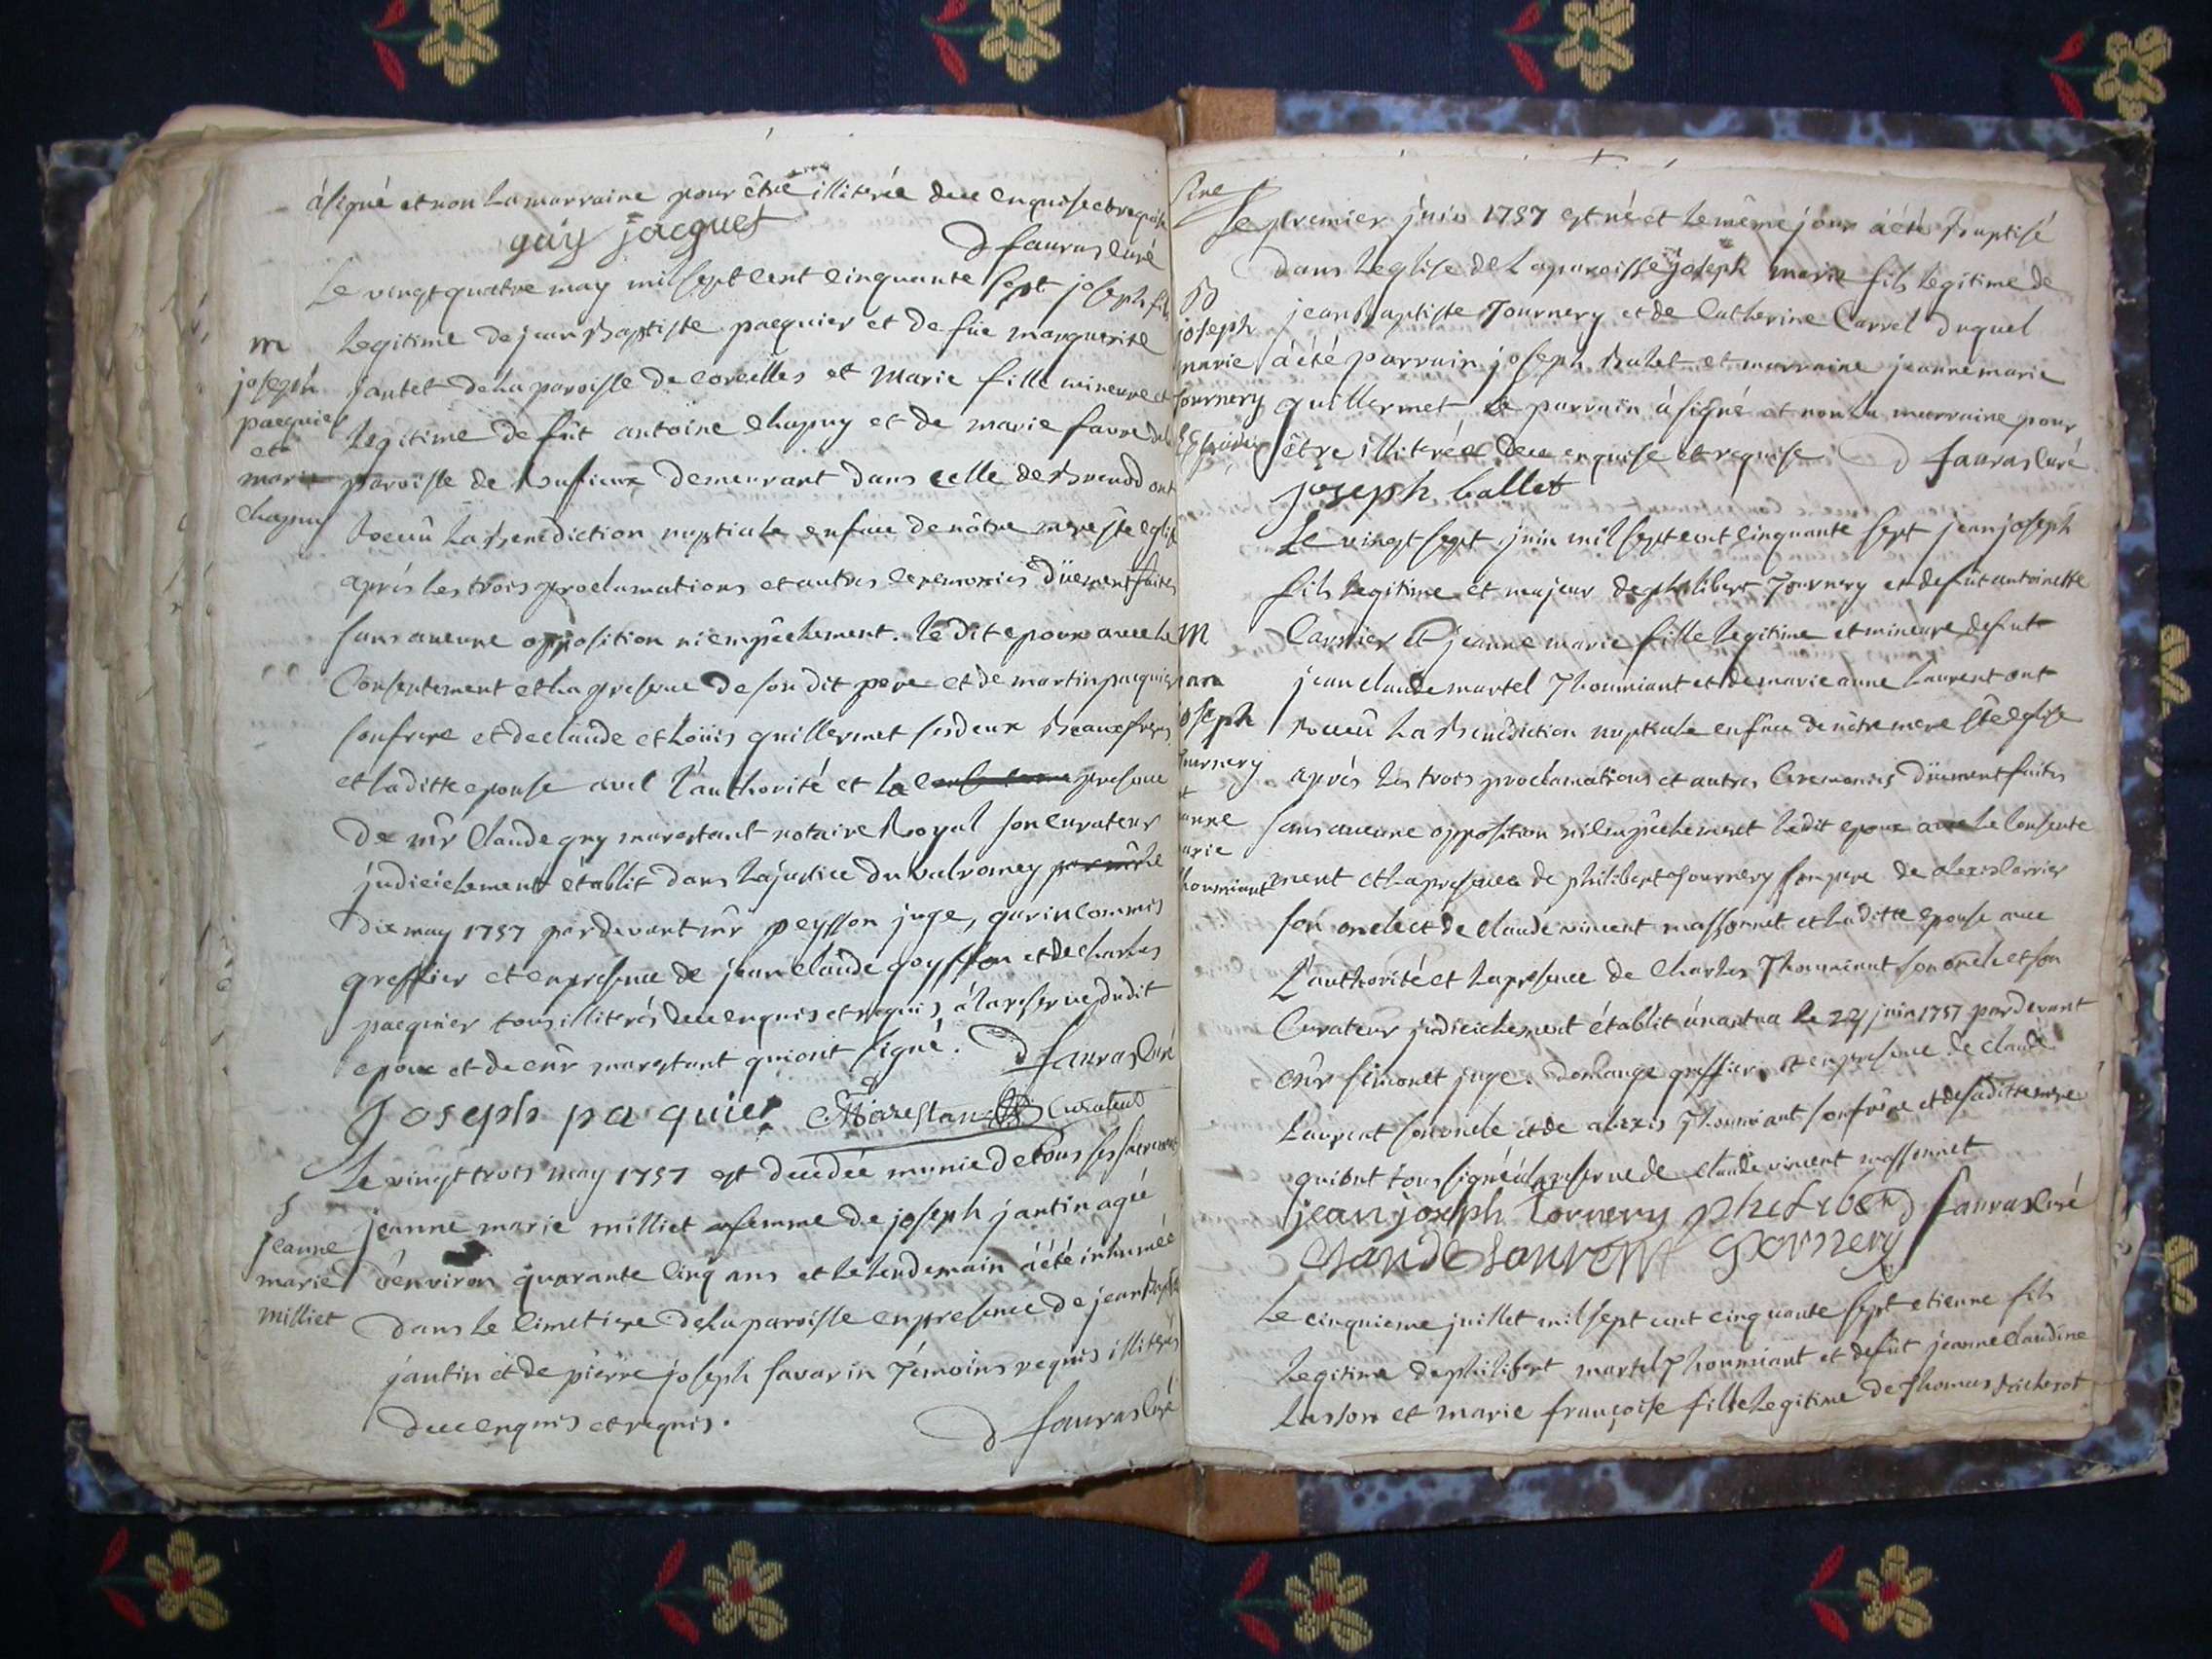 à signé et non la marraine pour être illiterée de ce enquise et requise
guÿ jacquet
D favras curé
Le vingt quatre may mil sept cent cinquante sept joseph fils
m
legitime de jean Baptiste pacquier et de füe marguerite
joseph
jantet de la paroisse de corcelles et Marie fille mineure et
pacquier
legitime de fût antoine chapuy et de marie favre de la
et
marie
paroisse de Rufieux demeurant dans celle de Brenod ont
chapuy
Receû la Benediction nuptiale en face de nôtre mere ste eglise
aprés les trois proclamations et autres ceremonies düement faites
sans aucune opposition ni empêchement. le dit epoux avec le
Consentement et la presence de son dit pere et de martin pacquier
son frere et de claude et Loüis guillermet ses deux Beaux freres
et la ditte epouse avec l'authorité et la presence
De mr Claude guy marestant notaire Royal son curateur
judicielement établit dans la justice du valromey
dix may 1757 pardevant mr peysson juge, garin commis
greffier et en presence de jean claude goyffon et de charles
pacquier tous illiterés de ce enquis et requis à la reserve du dit
epoux et de mr marestant qui ont signé. D favras curé
Joseph paquier Marestant Curateur
Le vingt trois may 1757 est decedée munie de tous ses sacrements
S
jeanne marie milliet femme de joseph jantin agée
jeanne
d'environ quarante cinq ans et le lendemain à été inhumée
marie
milliet
dans le cimetiere de la paroisse en presence de jean Baptiste
jantin et de pierre joseph savarin témoins requis illiterés
de ce enquis et requis.
D favras curé
Le premier juin 1757 est né et le même jour à été Baptisé
dans leglise de la paroisse joseph marie fils legitime de
B
joseph
jean Baptiste Tournery et de Catherine Carrel duquel
marie
à été parrain joseph Balet et marraine jeanne marie
Tournery
guillermet le parrain à signé et non la marraine pour
être illiterée de ce enquise et requise D favras curé
joseph ballet
Le vingt sept juin mil sept cent cinquante sept jean joseph
fils legitime et majeur de philibert Tournery et de fût antoinette
m
Carrier et jeanne marie fille legitime et mineure de fut
jean claude martel Thoumiant et de marie anne Laurent ont
oseph
Receû la Benediction nuptiale en face de nôtre mere ste eglise
ournery
aprés les trois proclamations et autres Ceremonies düement faites
anne
sans aucune opposition ni empêchement ledit epoux avec le Consente
arie
houmiant
ment et la presence de philibert Tournery son pere de alexis Carrier
son oncle et de claude vincent massonnet et la ditte epouse avec
L'authorité et la presence de Charles Thoumiant son oncle et son
Curateur judiciellement établit à nantua le 22 juin 1757 pardevant
mr simonet juge. Domange greffier et en presence de claude
Laurent son oncle et de alexis Thoumiant son frère et de sa ditte mere
qui ont tous signé à la reserve de claude vincent massonnet
jean joseph Tornery phelibert D favras curé
claude laurent Tornery
Le cinquieme juillet mil sept cent cinquante sept etienne fils
legitime de philibert martel Thoumiant et de fût jeanne claudine
Lusson et marie françoise fille legitime de thomas